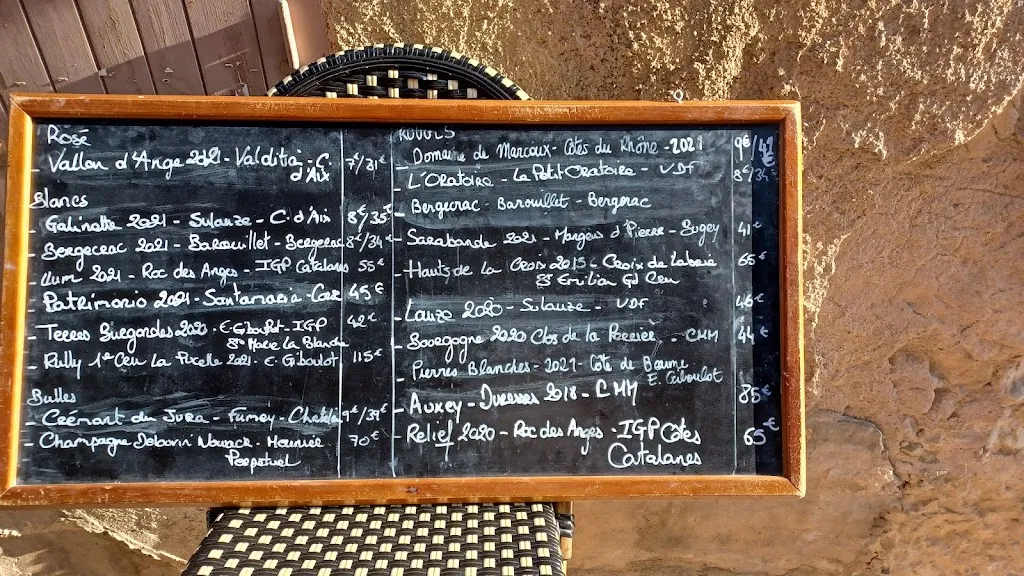 Rosé
- Vallon d'Ange 2021 - Valditia - C. 7€/31€
d'Aix
Blancs
- Galinette 2021 - Sulauze - C. d'Aix 8€/35€
- Bergecrac 2021 - Barouillet - Bergerac 8€/34€
- Llum 2021 - Roc des Anges - IGP Catalanes 55€
- Patrimonio 2021 - Santamaria - 45€
- Terres Burgondes 2020 - E. Giboulot - IGP 42€
Ste Marie la Blanche
- Rully 1er Cru La Pucelle 2021 - E. Giboulot 115€
Bulles
- Crémant du Jura - Fumey - Chatelain 9€/39€
- Champagne Nowack - Meunier 70€
Perpetuel
ROUGES
Domaine de Marcoux - Côtes du Rhône - 2021 9€/41€
- L'Oratoire - Le Petit Oratoire - VDF 8€/34€
- Bergecrac - Barouillet - Bergerac
- Sarabande 2021 - d'Pierre - Bugey 41€
- Hauts de la Croix 2015 - Croix de Labrie 65€
St Emilion Gd Cru
- Lauze 2020 - Sulauze - VDF 46€
- Bourgogne 2020 Clos de la Perrière - CHM 44€
- Pierres Blanches - 2021 - Côte de Beaune
E. Giboulot
- Auxey - Duresses 2018 - CHM 85€
- Relief 2020 - Roc des Anges - IGP Côtes 65€
Catalanes